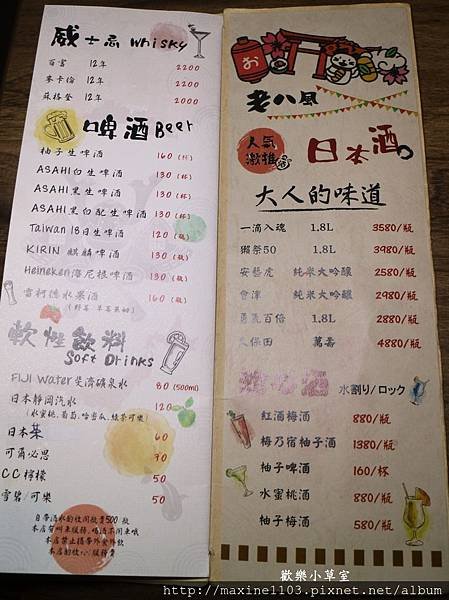 威士忌 Whisky
百富 12年 2200
麥卡倫 12年 2200
蘇格登 12年 2000
啤酒 Beer
柚子生啤酒 160 (杯)
ASAHI白生啤酒 130 (杯)
ASAHI黑生啤酒 130 (杯)
ASAHI黑白配生啤酒 130 (杯)
Taiwan 18日生啤酒 120 (瓶)
KIRIN 麒麟啤酒 130 (瓶)
Heineken海尼根啤酒 130 (瓶)
雪柯德水果酒 160 (瓶)
軟性飲料
Soft Drinks
FIJI Water斐濟礦泉水 80 (500ml)
日本靜岡汽水 120
(水蜜桃、葡萄、哈密瓜、綠茶可樂)
日本茶 60
可爾必思 70
CC檸檬 50
雪碧/可樂 50
自帶酒水酌收開瓶費500/瓶
本店禁止攜帶外食外飲
お
老八風
人氣
激推
日本酒
大人的味道
一滴入魂 1.8L 3580/瓶
獺祭50 1.8L 3980/瓶
安藝虎 純米大吟釀 2580/瓶
會津 純米大吟釀 2980/瓶
勇氣百倍 1.8L 2880/瓶
久保田 萬壽 4880/瓶
水割り/ロック
紅酒梅酒 880/瓶
梅乃宿柚子酒 1380/瓶
柚子啤酒 160/杯
水蜜桃酒 880/瓶
柚子梅酒 580/瓶
歡樂小草室
http://maxine1103.pixnet.net/album